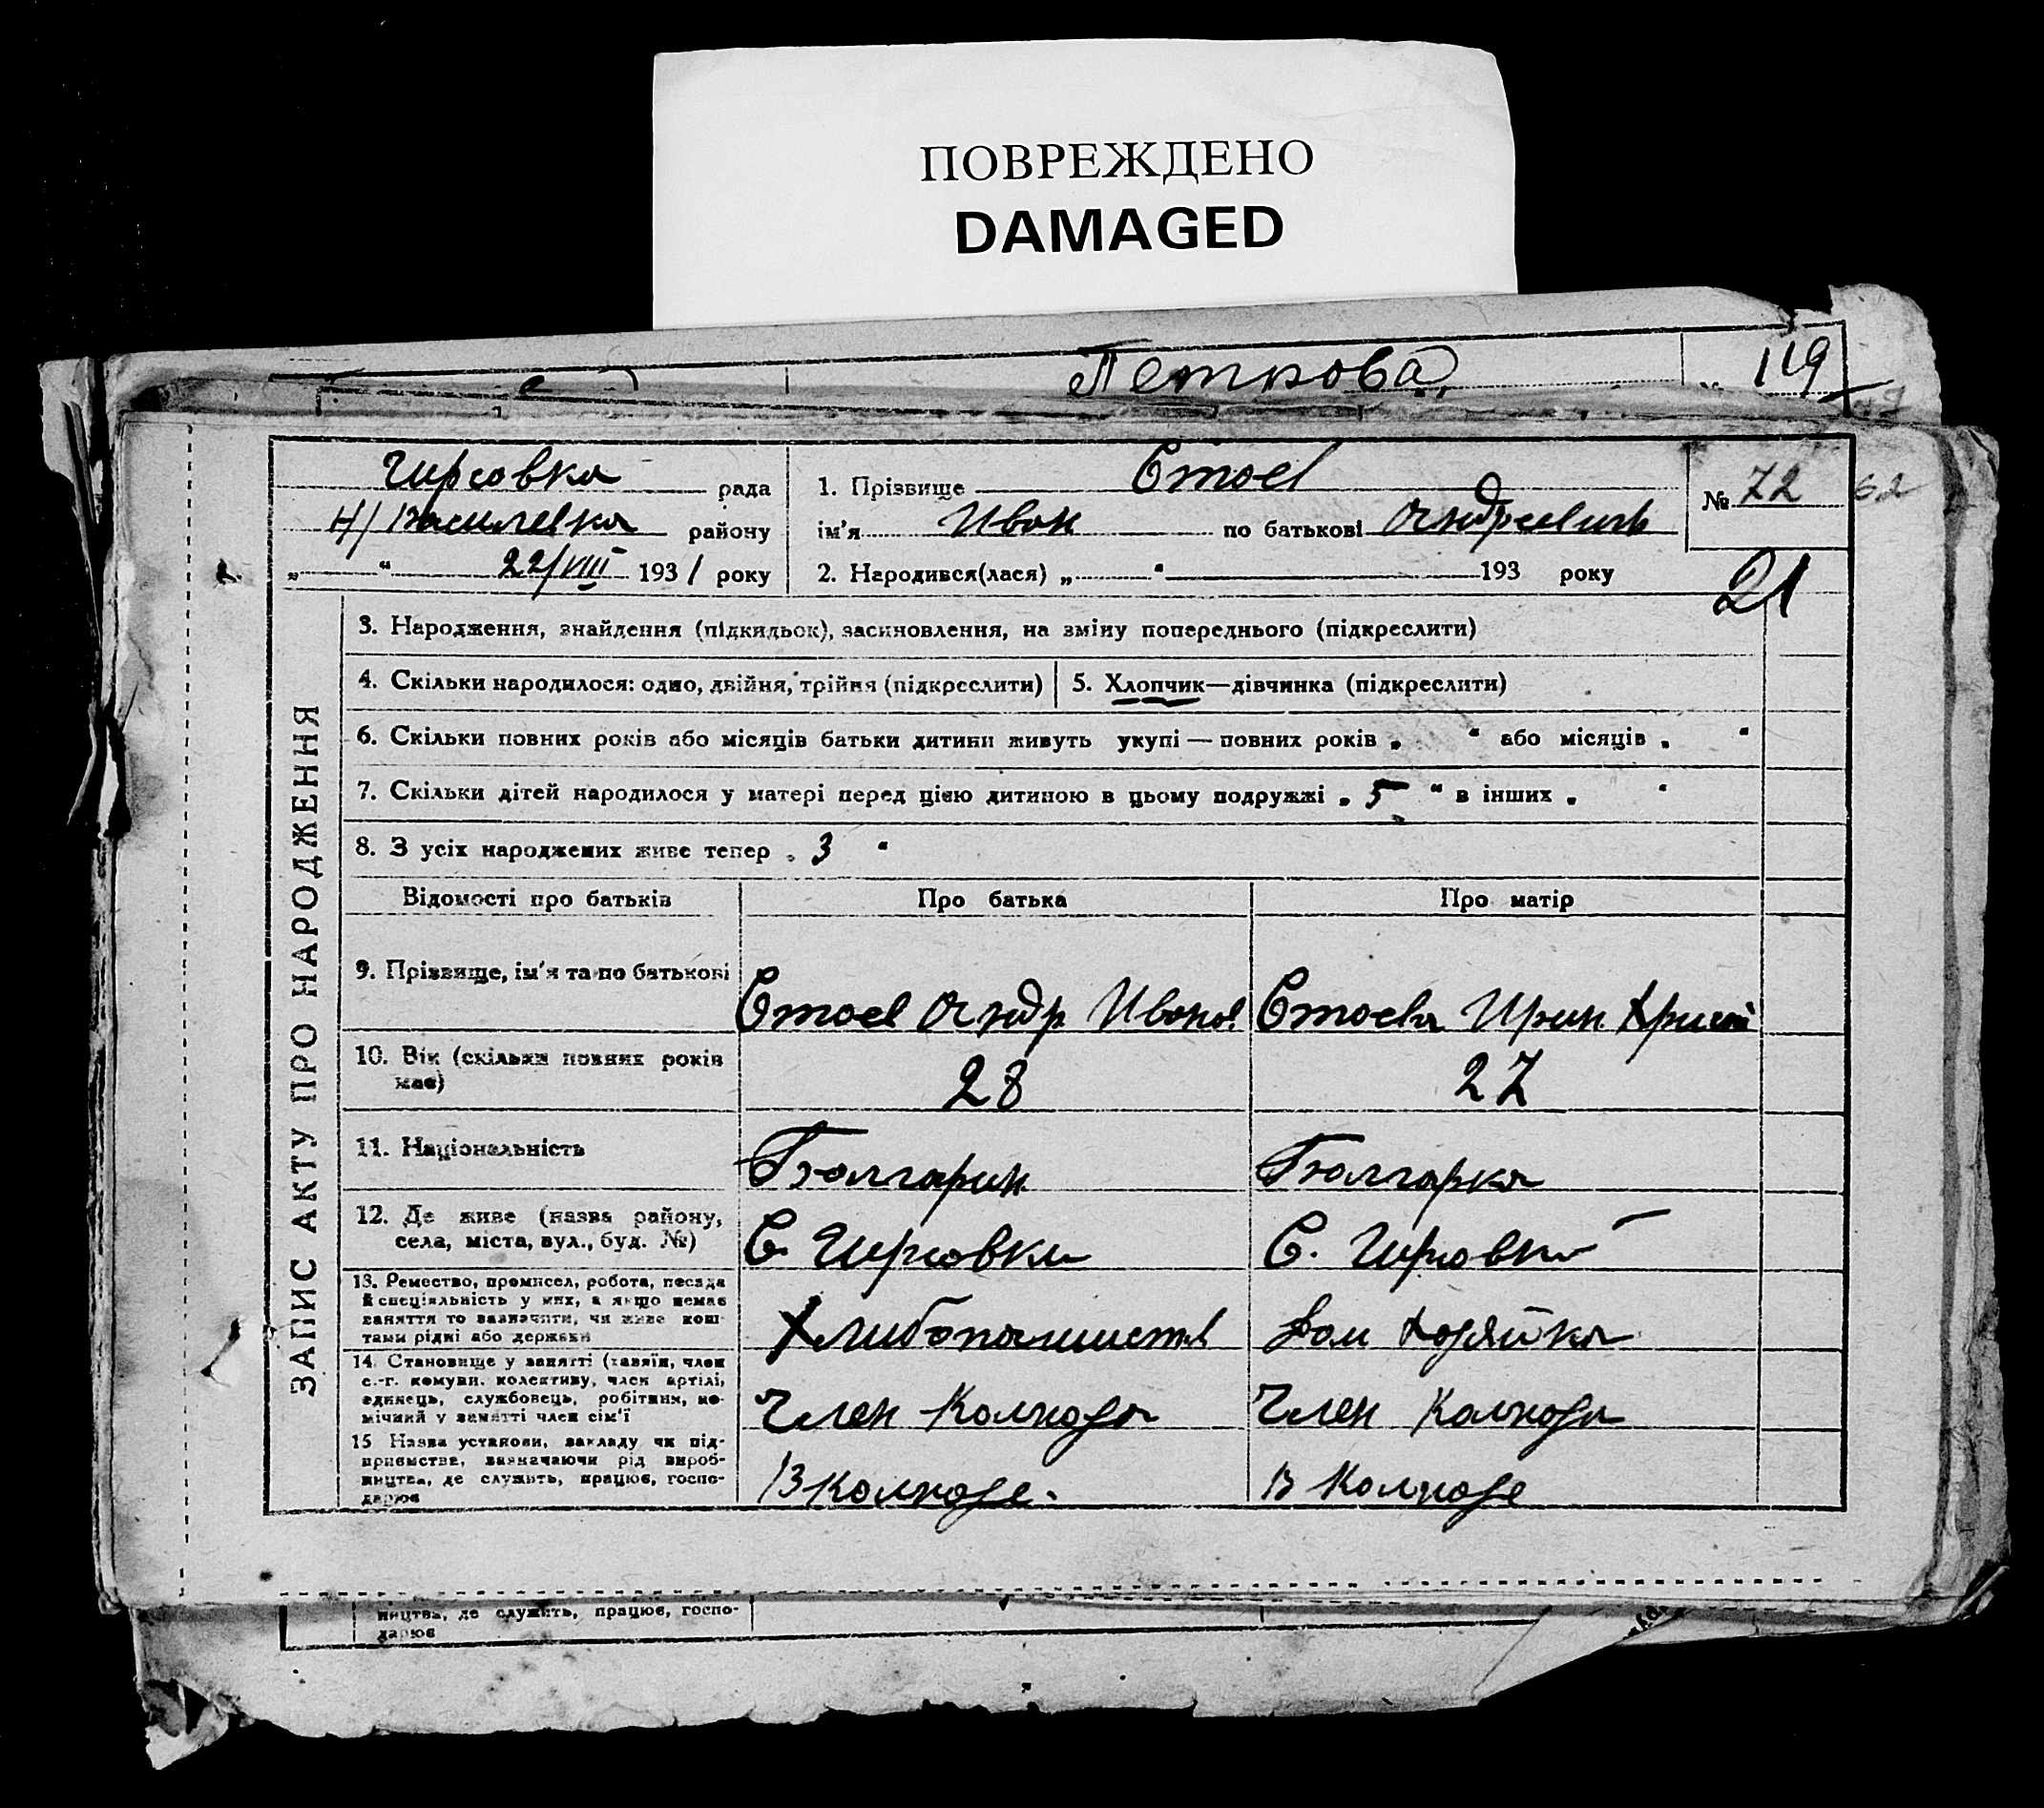 ПОВРЕЖДЕНО
DAMAGED
Петкова
119
Гирсовка рада
Н/Василевка района району
„ " 22/VIII 1931 року
1. Прізвище Стоев
ім'я Иван по батькові Андреевичь
2. Народився(лася) „ " 193 року
№ 72
62
21
ЗАПИС АКТУ ПРО НАРОДЖЕННЯ
3. Народження, знайдення (підкидьок), засиновлення, на зміну попереднього (підкреслити)
4. Скільки народилося: одно, двійня, трійня (підкреслити)
5. Хлопчик—дівчинка (підкреслити)
6. Скільки повних років або місяців батьки дитини живуть укупі — повних років „ " або місяців „ "
7. Скільки дітей народилося у матері перед цією дитиною в цьому подружжі „ 5 " в інших „ "
8. З усіх народжених живе тепер „ 3 "
Відомості про батьків Про батька Про матір
9. Прізвище, ім'я та по батькові Стоев Андр Иванов Стоева Ирин
10. Вік (скільки повних років має) 28 27
11. Національність Болгарин Болгарка
12. Де живе (назва району,
села, міста, вул., буд. №) С. Гирсовка С. Гирсовка
13. Ремество, промисел, робота, посада
й спеціяльність у них, а якщо немає
заняття то зазначити, чи живе кош-
тами рідні або держави
Хлибопашиств Дом Хозяйка
14. Становище у занятті (хазяїн, член
с.-г. комуни, колективу, член артілі,
одинець, службовець, робітник, по-
мічний у занятті член сім'ї
Член Колхоза Член Колхоза
15 Назва установи, закладу чи під-
приємства, зазначаючи рід вироб-
ництва, де служить, працює, госпо-
дарює
В Колхозе. В Колхозе
ництва, де служить, працює, госпо-
дарює